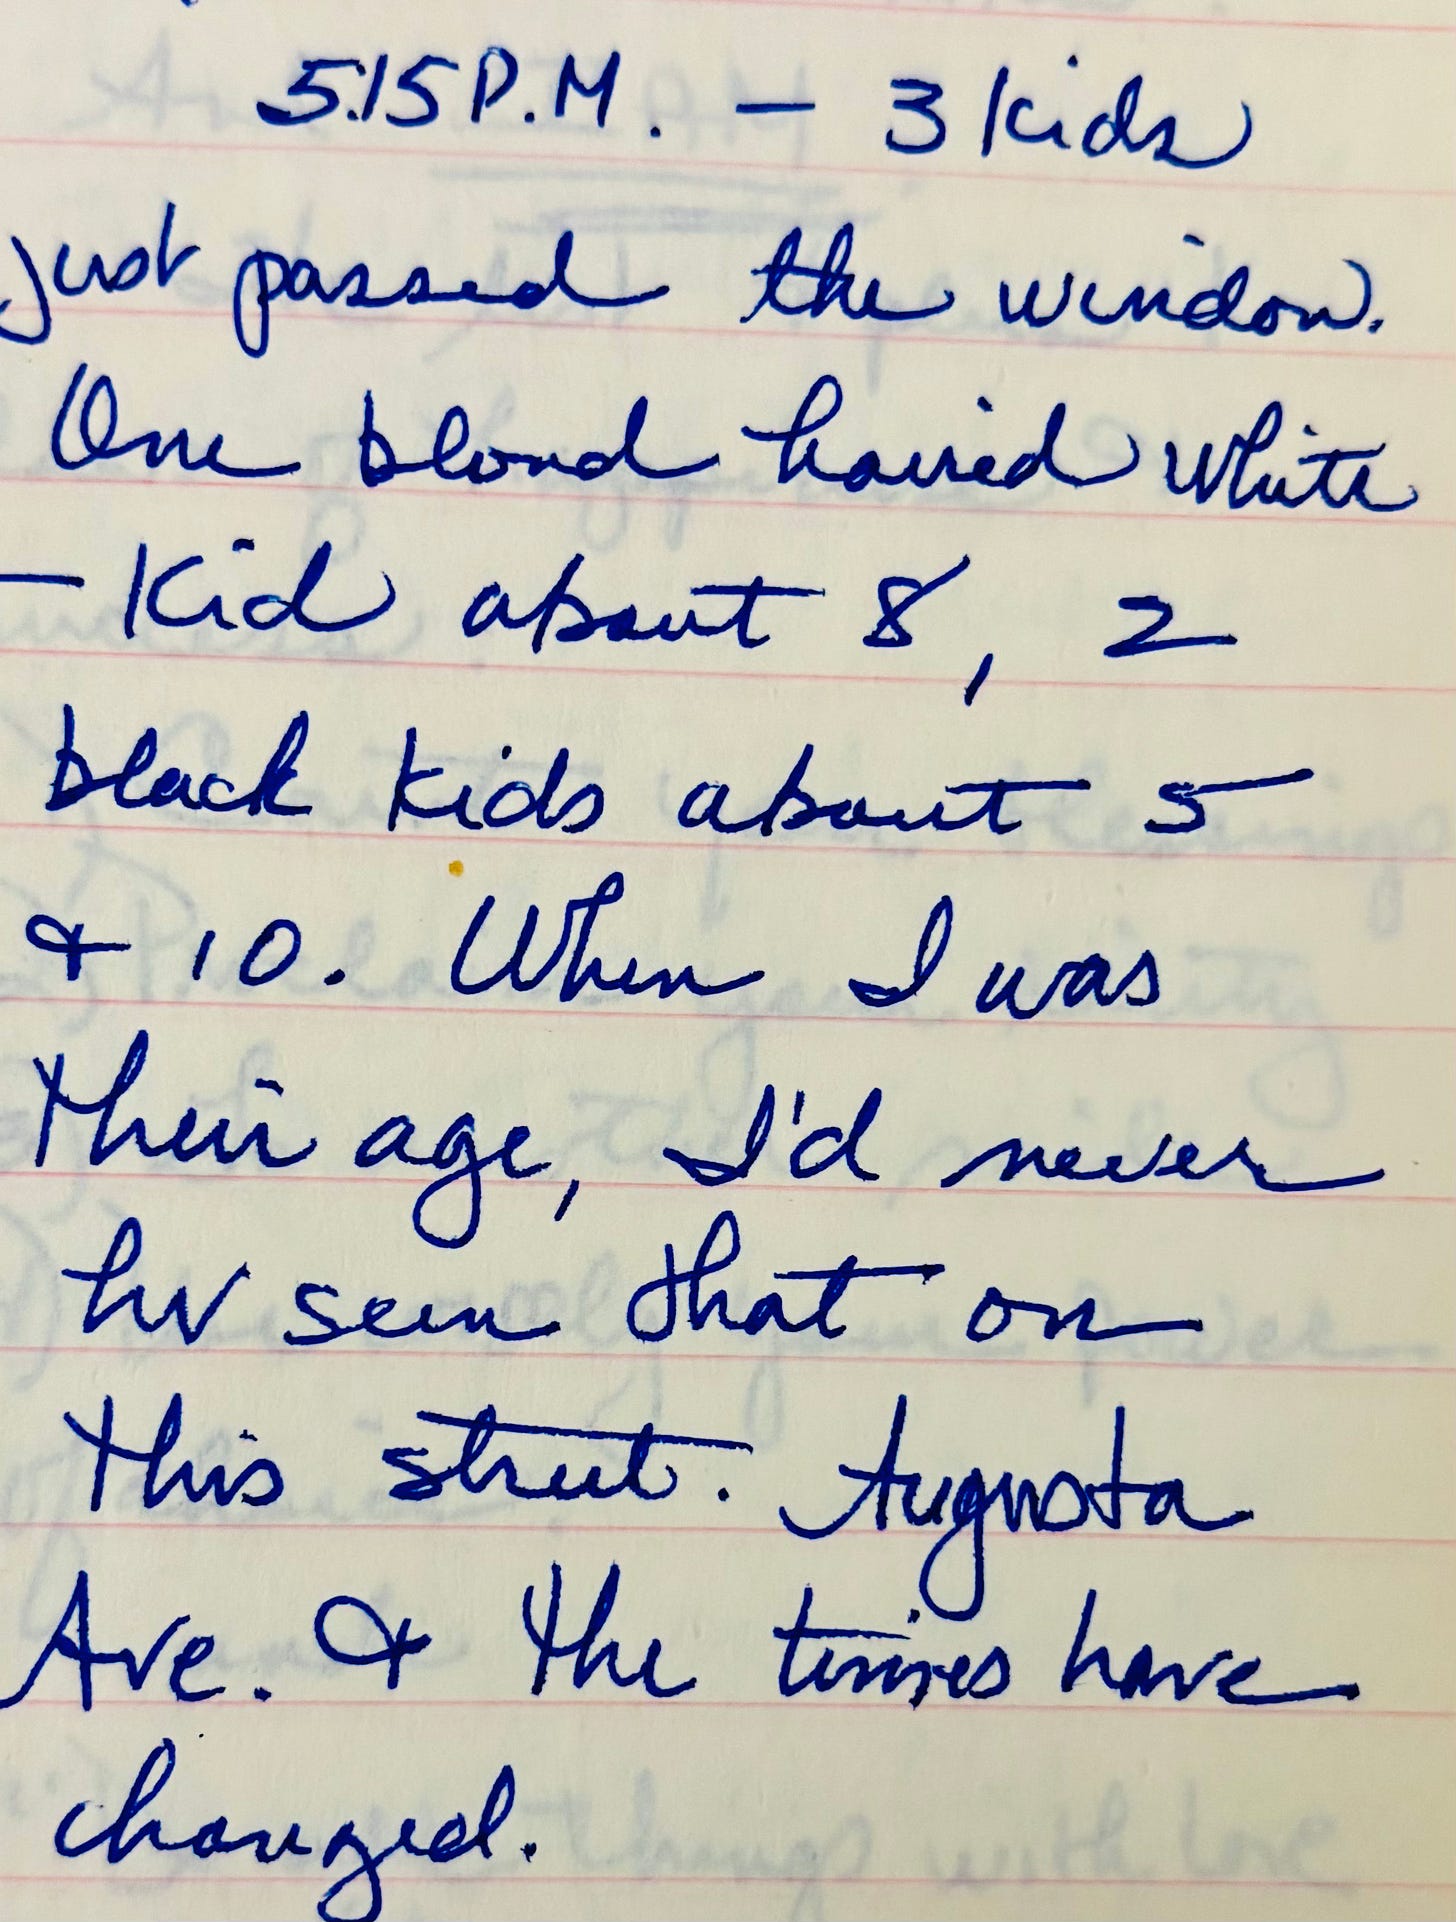 5:15 P.M. — 3 kids
just passed the window.
One blond haired white
— Kid about 8, 2
black kids about 5
& 10. When I was
their age, I'd never
hv seen that on
this street. Augusta
Ave. & the times have
changed.